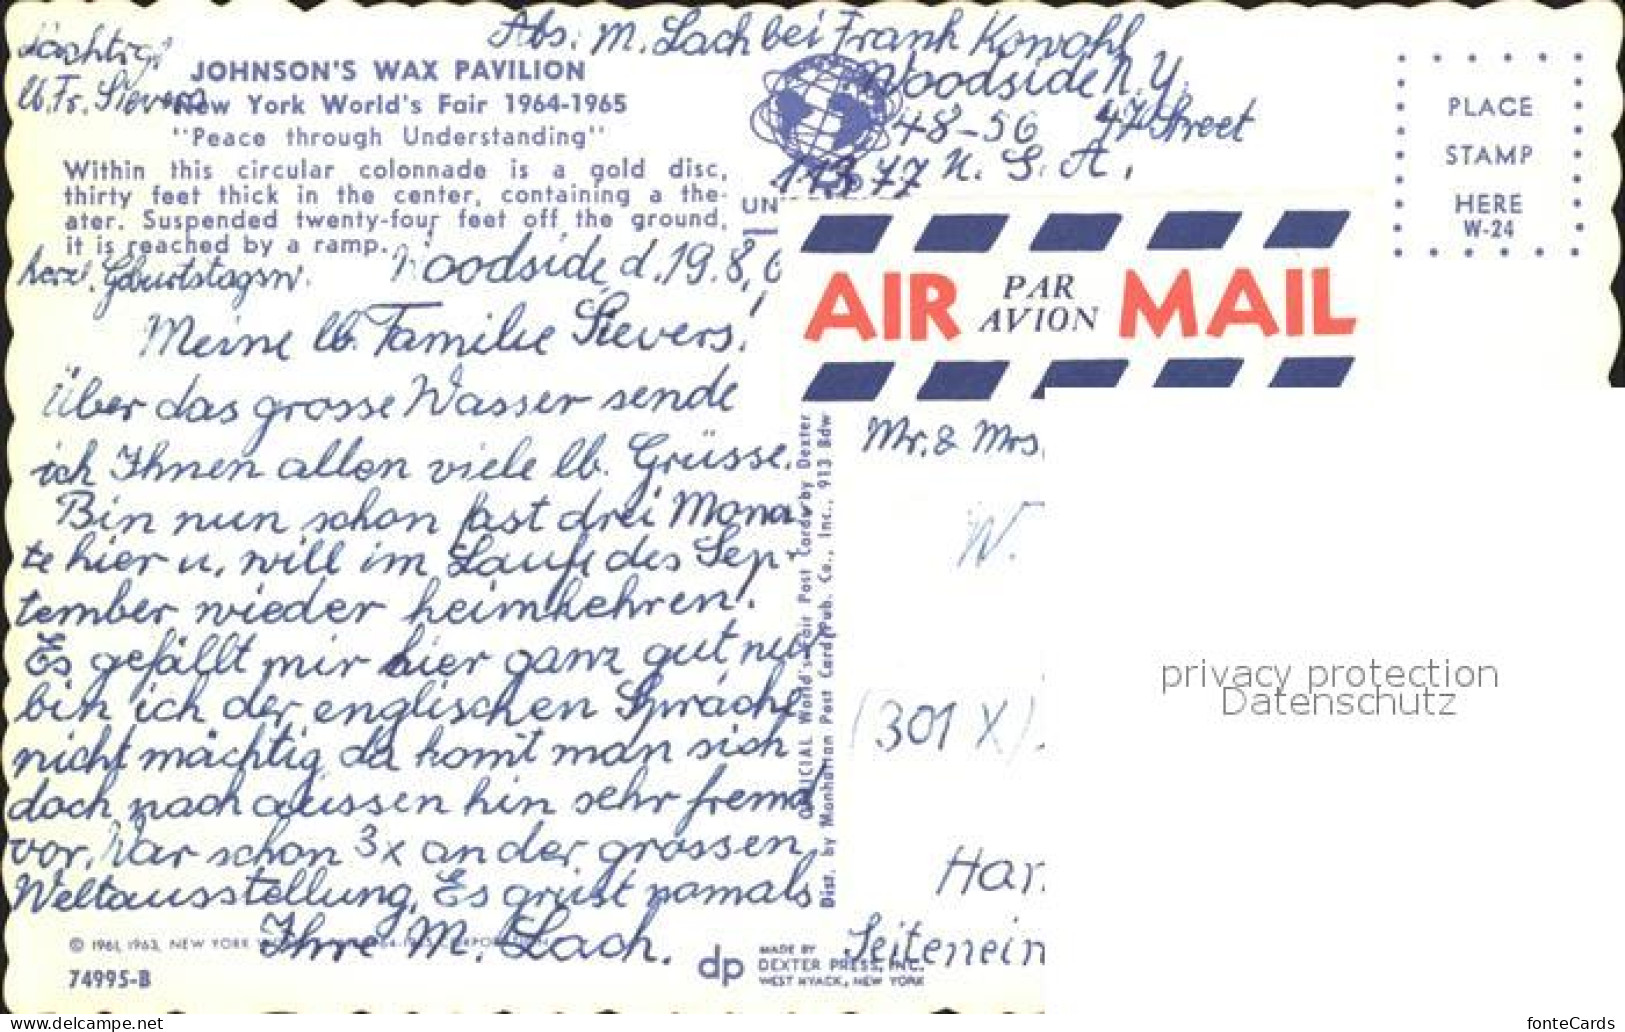 Abs. M. Lach bei Frank Kowahl
Woodside N.Y.
48-56 47 Street
11377 U. S. A.
lb. Fr. Sievers
JOHNSON'S WAX PAVILION
New York World's Fair 1964-1965
"Peace through Understanding"
Within this circular colonnade is a gold disc,
thirty feet thick in the center, containing a the-
ater. Suspended twenty-four feet off the ground,
it is reached by a ramp.
UN
PLACE
STAMP
HERE
W-24
herzl. Geburtstagsw.
Woodside, d. 19.8,6
AIR PAR AVION MAIL
Meine lb. Familie Sievers!
Über das grosse Wasser sende
ich Ihnen allen viele lb. Grüsse.
Bin nun schon fast drei Mona-
te hier u. will im Laufe des Sep-
tember wieder heimkehren.
Es gefällt mir hier ganz gut nur
bin ich der englischen Sprache
nicht mächtig, da komt man sich
doch nach aussen hin sehr fremd
vor. War schon 3x an der grossen
Weltausstellung. Es grüst nomals
Ihre M. Lach.
OFFICIAL World's Fair Post Cards by Dexter
Dist. by Manhattan Post Card Pub. Co., Inc., 913 Bdw
Mr. & Mrs.
W.
(301 X)
Har.
Seitenein
© 1961, 1963, NEW YORK WORLD'S FAIR 1964-1965 CORPORATION
74995-B
dp
MADE BY
DEXTER PRESS, INC.
WEST NYACK, NEW YORK
privacy protection
Datenschutz
https://www.delcampe.net
fonteCards